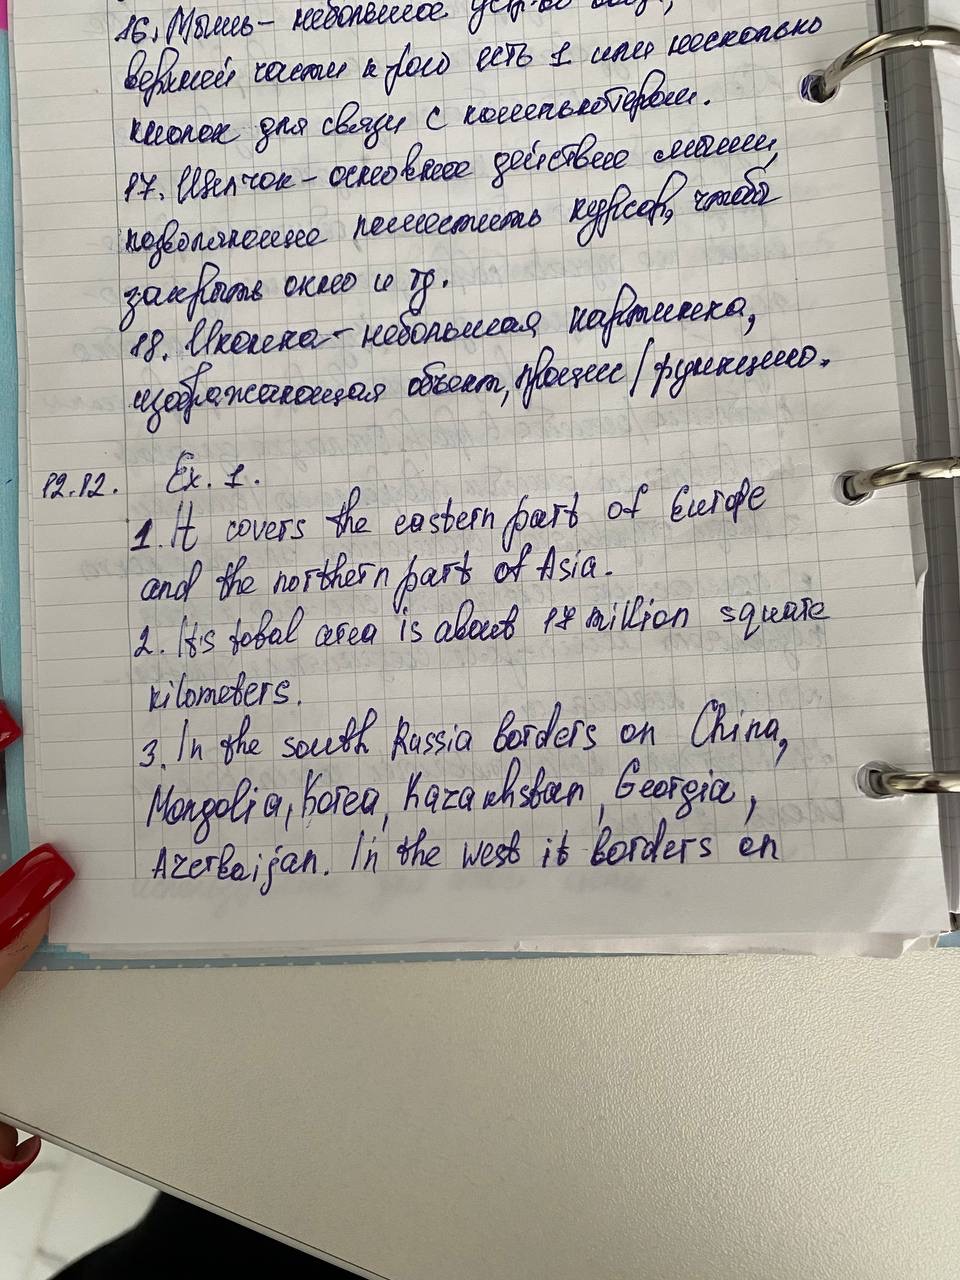 16. Мышь – небольшое устр-во ввода,
верхней части к-рого есть 1 или несколько
кнопок для связи с компьютером.
17. Щелчок – основное действие мыши,
позволяющие поместить курсор, чтобы
закрыть окно и тд.
18. Иконка – небольшая картинка,
изображающая объект, процесс/функцию.
12.12. Ex. 1.
1. It covers the eastern part of Europe
and the northern part of Asia.
2. Its total area is about 17 million square
kilometers.
3. In the south Russia borders on China,
Mongolia, Korea, Kazakhstan, Georgia,
Azerbaijan. In the west it borders on